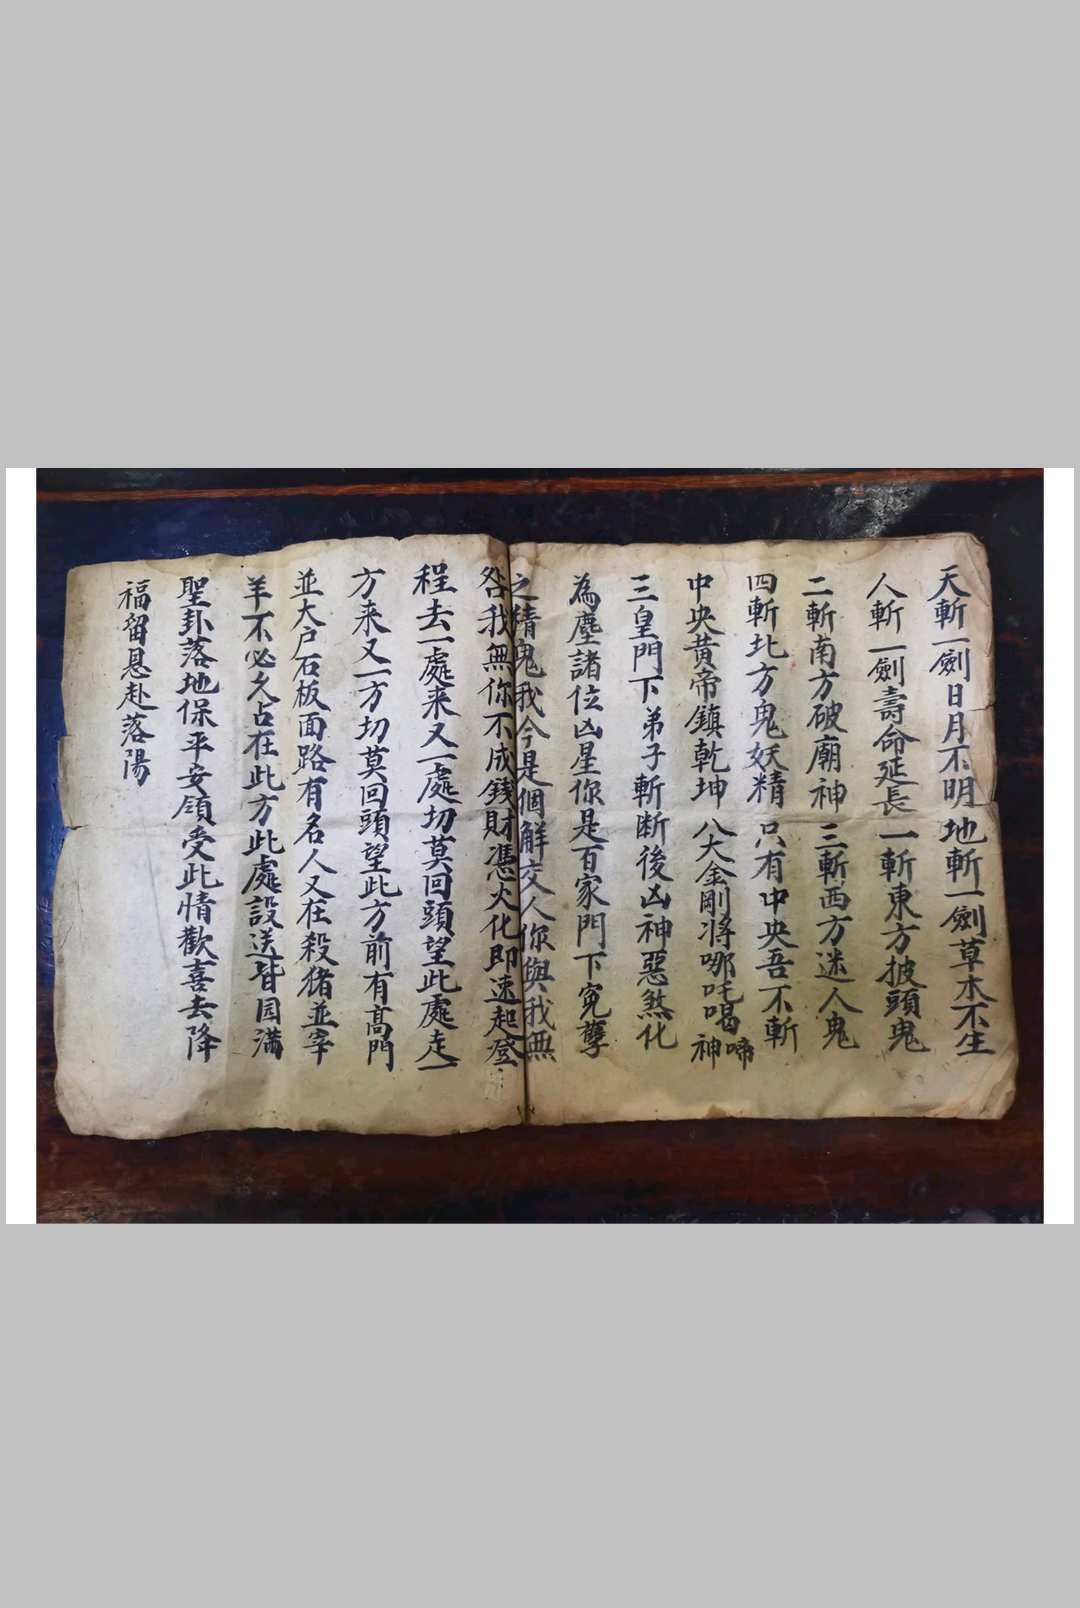 天斬一劍日月不明地斬一劍草木不生
人斬一劍壽命延長一斬東方披頭鬼
二斬南方破廟神三斬西方迷人鬼
四斬北方鬼妖精只有中央吾不斬
中央黄帝鎮乾坤八大金剛将哪吒喝啼神
三皇門下弟子斬断後凶神惡煞化
為塵諸位凶星你是百家門下寃孽
之精鬼我今是個解交人你與我無
咎我無你不成錢財憑火化即速起登
程去一處来又一處切莫回頭望此處走一
方来又一方切莫回頭望此方前有高門
並大户石板面路有名人又在殺猪並宰
羊不必久占在此方此處設送皆园满
聖卦落地保平安領受此情歡喜去降
福留恩赴落陽